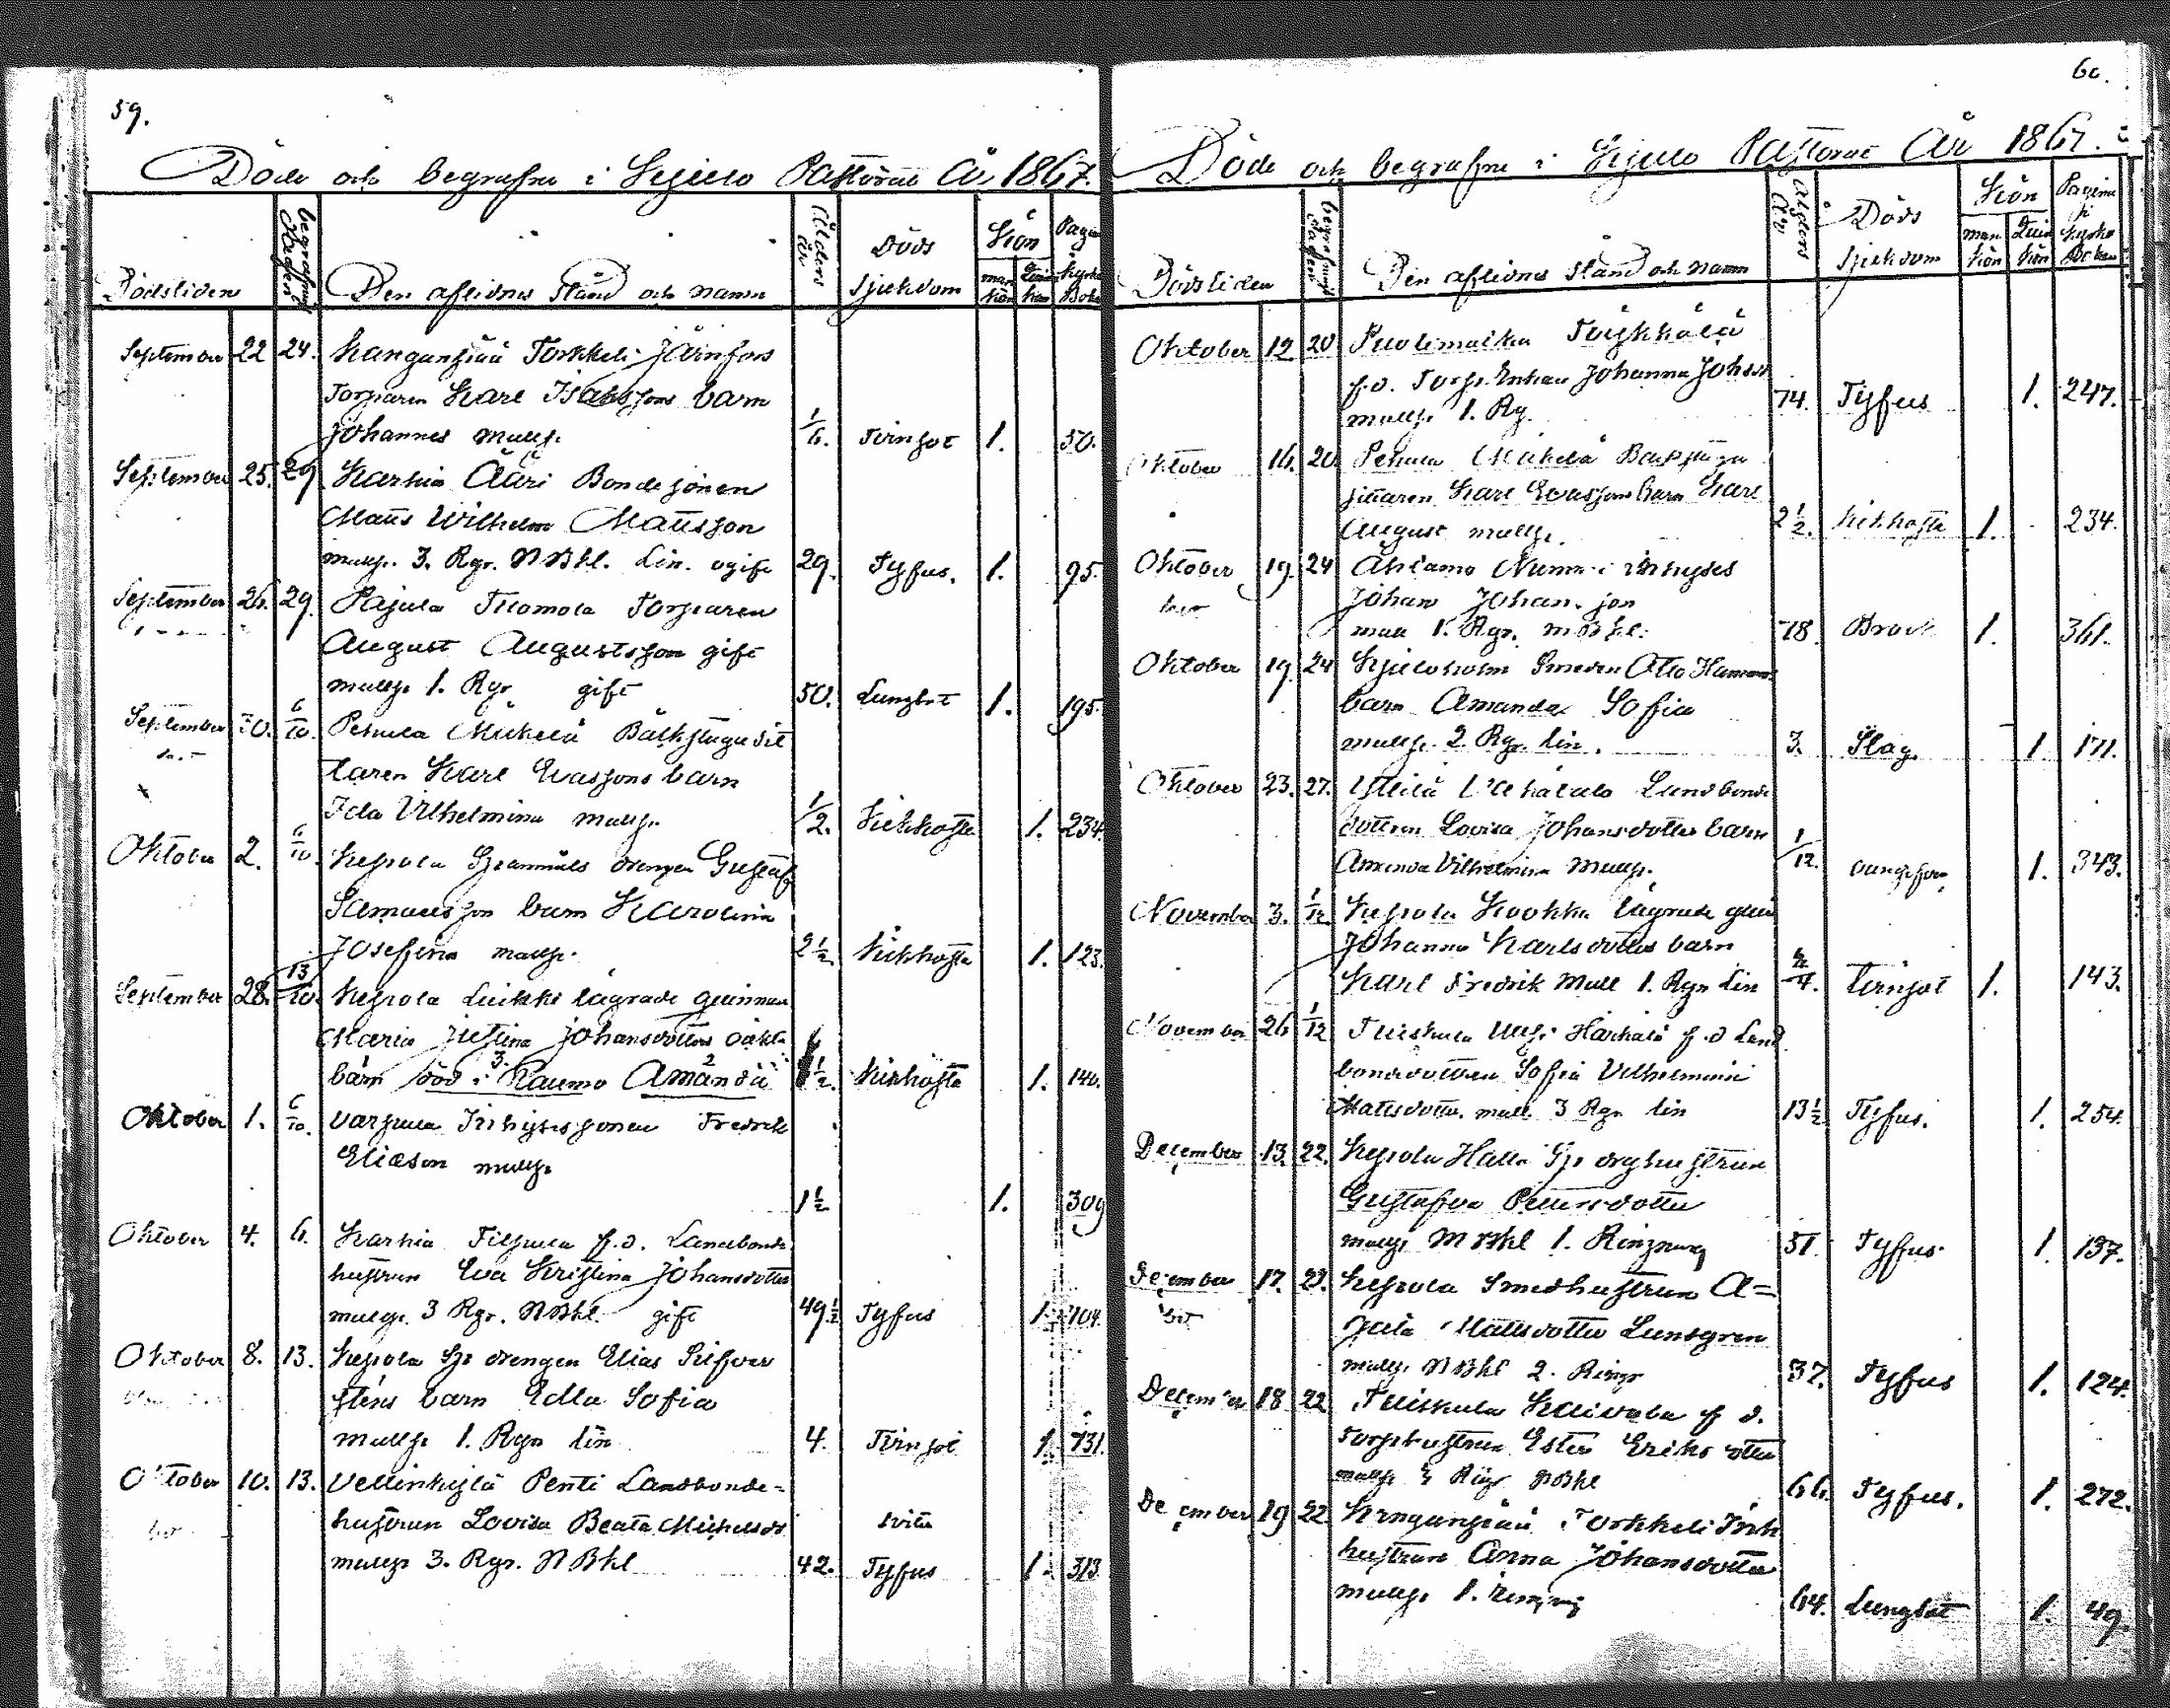 59.
Döde och begrafne i Kjulo Pastorat År 1867.
Dödstiden
begrafnings Dagen
Den aflidnes stånd och namn
Ålders år
Döds sjukdom
Kön
man kön
Pagina Kyrko Boken
September 22 24. Kanganpää Torkkeli Järnfors
Torparen Karl Isakssons barn
Johannes mullp. 1/6. Tvinsot 1. 50.
September 25. 29 Karhia Ääri Bondesonen
Matts Wilhelm Mattsson
mullp. 3. Rgr. NBkl. Lin. ogift 29. Tyfus. 1. 95.
September 26. 29. Pajula Tuomola Torparen
August Augustsson gift
mullp 1. Rgr gift 50. Lungsot 1. 195.
September 30. 6/10. Pehula Mickelä Backstugusit
taren Karl Evassons barn
Ida Vilhelmina mullp. 1/2. Kikhosta 1. 234.
Oktober 2. 6/10. Kepola drengen Gustaf
Samuelsson barn Karolina
Josefina mullp. 2 1/2. Kikhosta 1. 123.
September 28. 13/10. Kepola Leikki lägrade qvinnan
Maria Justina Johansdotters oäkta
barn död i Raumo Amanda 1/2. Kikhosta 1. 140.
Oktober 1. 6/10. Varpula Inhysessonen Fredrik
Eliasson mullp.
1 1/2 1. 309
Oktober 4. 6. Karhia Filpula f.d. Landbonde
hustrun Eva Kristina Johansdotter
mullp. 3 Rgr. NBkl. gift 49 1/2 Tyfus 1. 104.
Oktober 8. 13. Kepola Sp drengen Elias Silfver
stens barn Edla Sofia
mullp 1. Rgn lin 4. Tvinsot 1. 131.
Oktober 10. 13. Vellinkylä Penti Landbonde=
hustrun Lovisa Beata Michelsdr
mullp 3. Rgr. NBkl 42. Tyfus 1. 313.
60.
Döde och begrafne i Kjulo Pastorat År 1867.
Dödstiden
begrafnings dagen
Den aflidnes stånd och namn
Ålders År
Döds sjukdom
Kön
man kön
Qvin kön
Pagina i Kyrko Boken
Oktober 12 20 Puolimatka Töykkälä
f.d. Torp. Enkan Johanna Johsdr
mullp. 1. Rg. 74. Tyfus 1. 247.
Oktober 16. 20 Pehula Mäkelä Backstugu
sittaren Karl Evassons barn Karl
August mullp. 2 1/2. Kikhosta 1. 234.
Oktober 19. 24 Inhyses
Johan Johansson
mull 1. Rgr. 78. Bråck 1. 361.
Oktober 19 24 Kjuloholm Smeden Otto
barn Amanda Sofia
mullp. 2 Rgr. lin. 3. Slag. 1 171.
Oktober 23. 27. Landbonde
dottren Lovisa Johansdotters barn
Amanda Vilhelmina mullp. 1/12. 1. 343.
November 3. 1/12 Kepola lägrade qvin
Johanna Karlsdotters barn
Karl Fredrik Mull 1. Rgn lin Tvinsot 1. 143.
November 26 1/12 Tuiskula f.d Land
bondedottren Sofia Vilhelmina
Mattsdotter. mull. 3 Rgr lin 13 1/2 Tyfus. 1. 254.
December 13. 22. Kepola Halla Sp drghustrun
Gustafva Pettersdotter
mullp NBkl 1. Ringning 51. Tyfus. 1. 137.
December 17. 22. Kepola Smedhustrun A=
gata Mattsdotter Lundgren
mullp. NBkl 2. Ringr 37. Tyfus 1. 124.
December 18 22 Tuiskula f d.
Torphustrun Ester Eriksdotter
mullp Ringr NBkl 66. Tyfus. 1. 272.
December 19 22 Kanganpää Torkkeli Inh
hustrun Anna Johansdotter
mullp 1. Ringnig 64. Lungsot 1. 49.